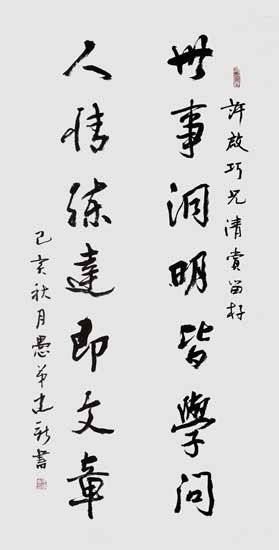 許啟巧兄清賞留存
世事洞明皆學問
人情練達即文章
己亥秋月愚弟建新書